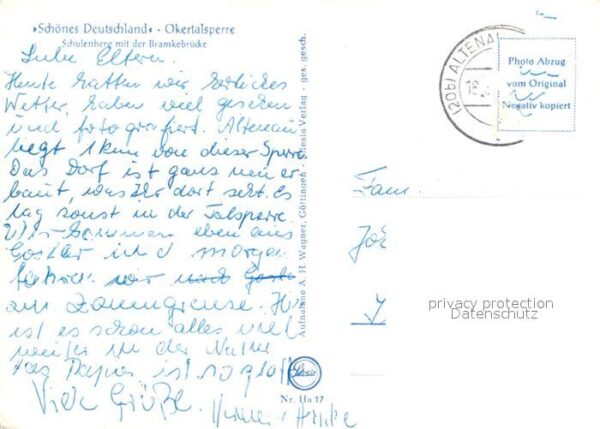 »Schönes Deutschland« - Okertalsperre
Schulenberg mit der Bramkebrücke
Liebe Eltern.
Heute hatten wir herrliches
Wetter, haben viel gesehen
und fotografiert. Altenau
liegt 1 km von dieser Sperre
Das Dorf ist ganz neu er
baut, was Ihr dort seht. Es
lag sonst in der Talsperre.
Wir kommen eben aus
Goslar und morgen
fahren wir nach Goslar
zur Zonengrenze. Hier
ist es schon alles viel
weiter in der Natur
das Papier ist so glatt
Viele Grüße
Aufnahme A. H. Wagner, Göttingen - Silesia Verlag - ges. gesch.
Silesia
Nr. Ha 17
(20b) ALTENAU
18.
Photo Abzug
vom Original
Negativ kopiert
Fam.
Jo
J
privacy protection
Datenschutz